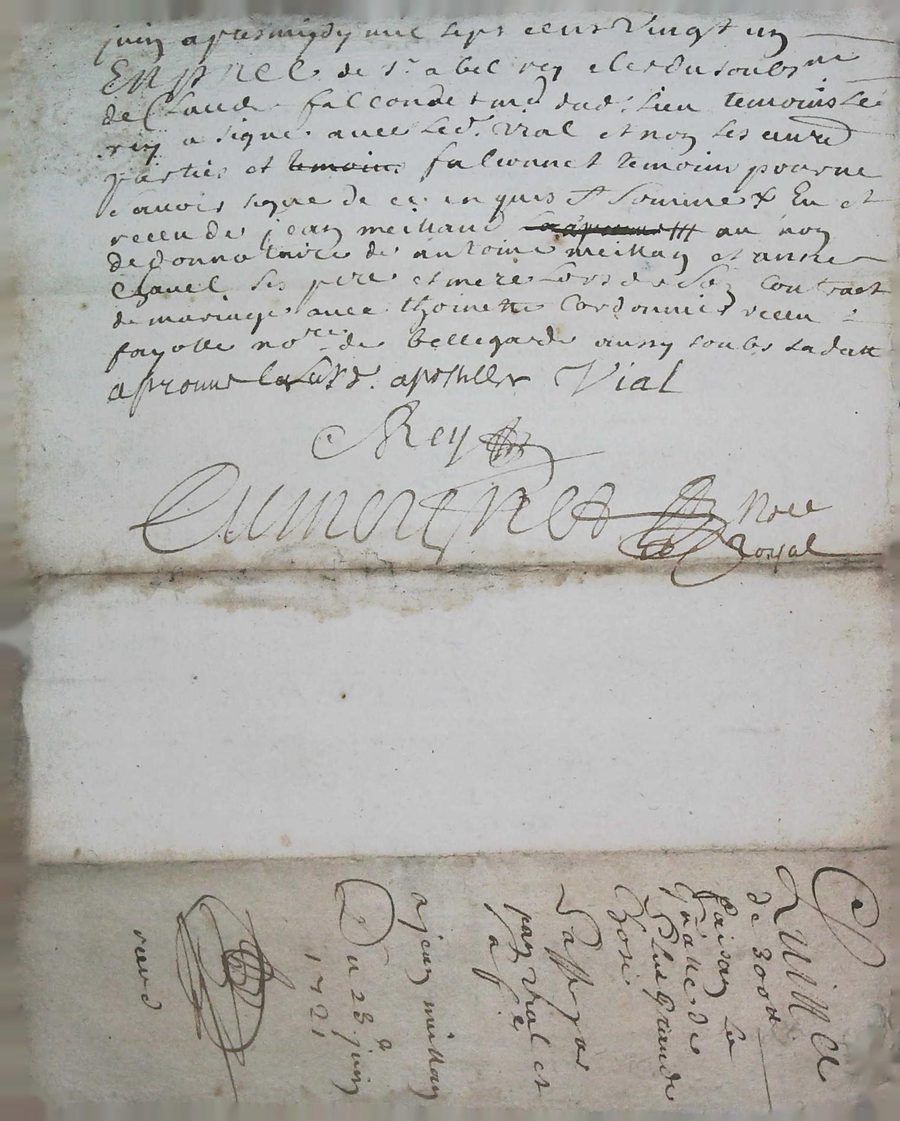 juin apres midy mil sept cens vingt un
EN PNCE de sr. abel rey clerc du soubsne
de Claude falconnet md dud. lieu temoins led.
rey a signe avec led. vial et non les autres
parties et temoin falconnet temoin pour ne
scavoir signe de ce enquis Somme x En et
receu de Jean meillaud au nom
de donnataire de antoine meillan et anne
Chavel ses pere et mere lors de son Contract
de mariage avec thoinette Cordonnier receu
fayolle nore. de bellegarde aussy soubs sa datte
approuve la susd. apostille Vial
Rey
Nore
Royal
Quitance
de 300 #
faisan la
de
plus grande
Passe par
par vial et
sa fe.
a jean meillan
Du 23e. juin
1721